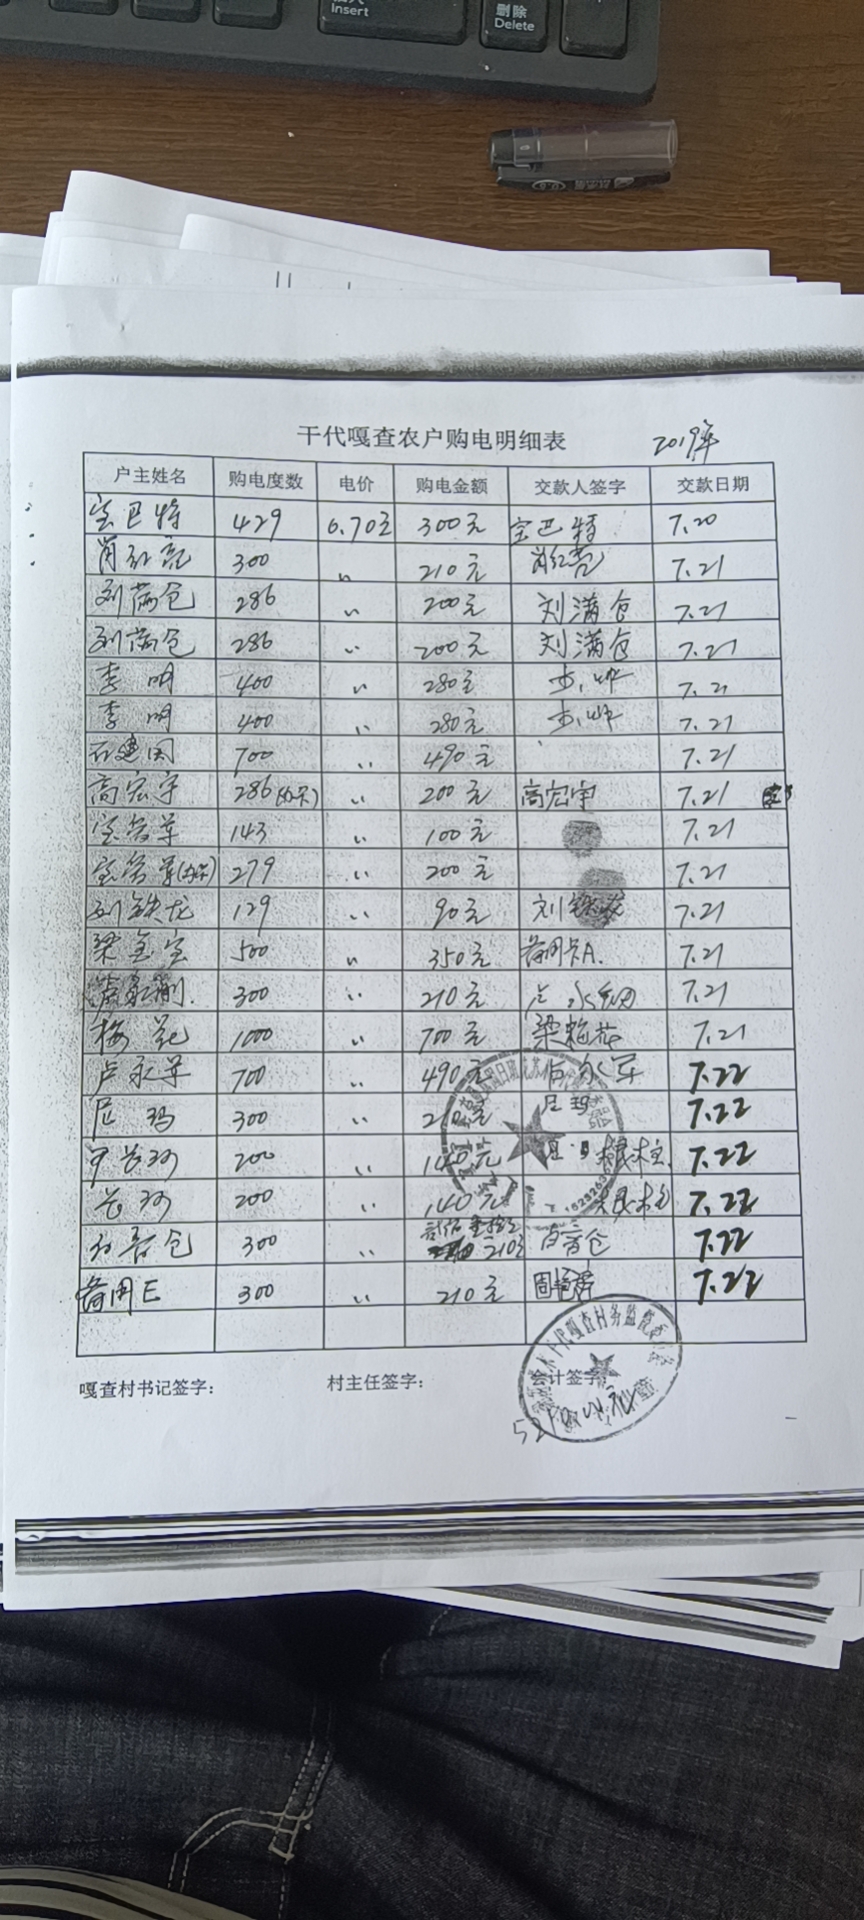 Insert
删除
Delete
干代嘎查农户购电明细表 2019年
户主姓名 购电度数 电价 购电金额 交款人签字 交款日期
宝巴特 429 0.70元 300元 宝巴特 7.20
300 〃 210元 7.21
刘满仓 286 〃 200元 刘满仓 7.21
刘满仓 286 〃 200元 刘满仓 7.21
李明 400 〃 280元 7.21
李明 400 〃 280元 7.21
石建国 700 〃 490元 7.21
高宏宇 286 〃 200元 高宏宇 7.21
143 〃 100元 7.21
279 〃 200元 7.21
刘铁龙 129 〃 90元 刘铁龙 7.21
梁金宝 500 〃 350元 备用卡A. 7.21
300 〃 210元 7.21
梅花 1000 〃 700元 梁梅花 7.21
卢永军 700 〃 490元 7.22
尼玛 300 〃 210元 尼玛 7.22
200 〃 140元 根柱 7.22
200 〃 140元 根柱 7.22
300 〃 210元 白音仓 7.22
备用E 300 〃 210元 7.22
嘎查村书记签字： 村主任签字： 会计签字：